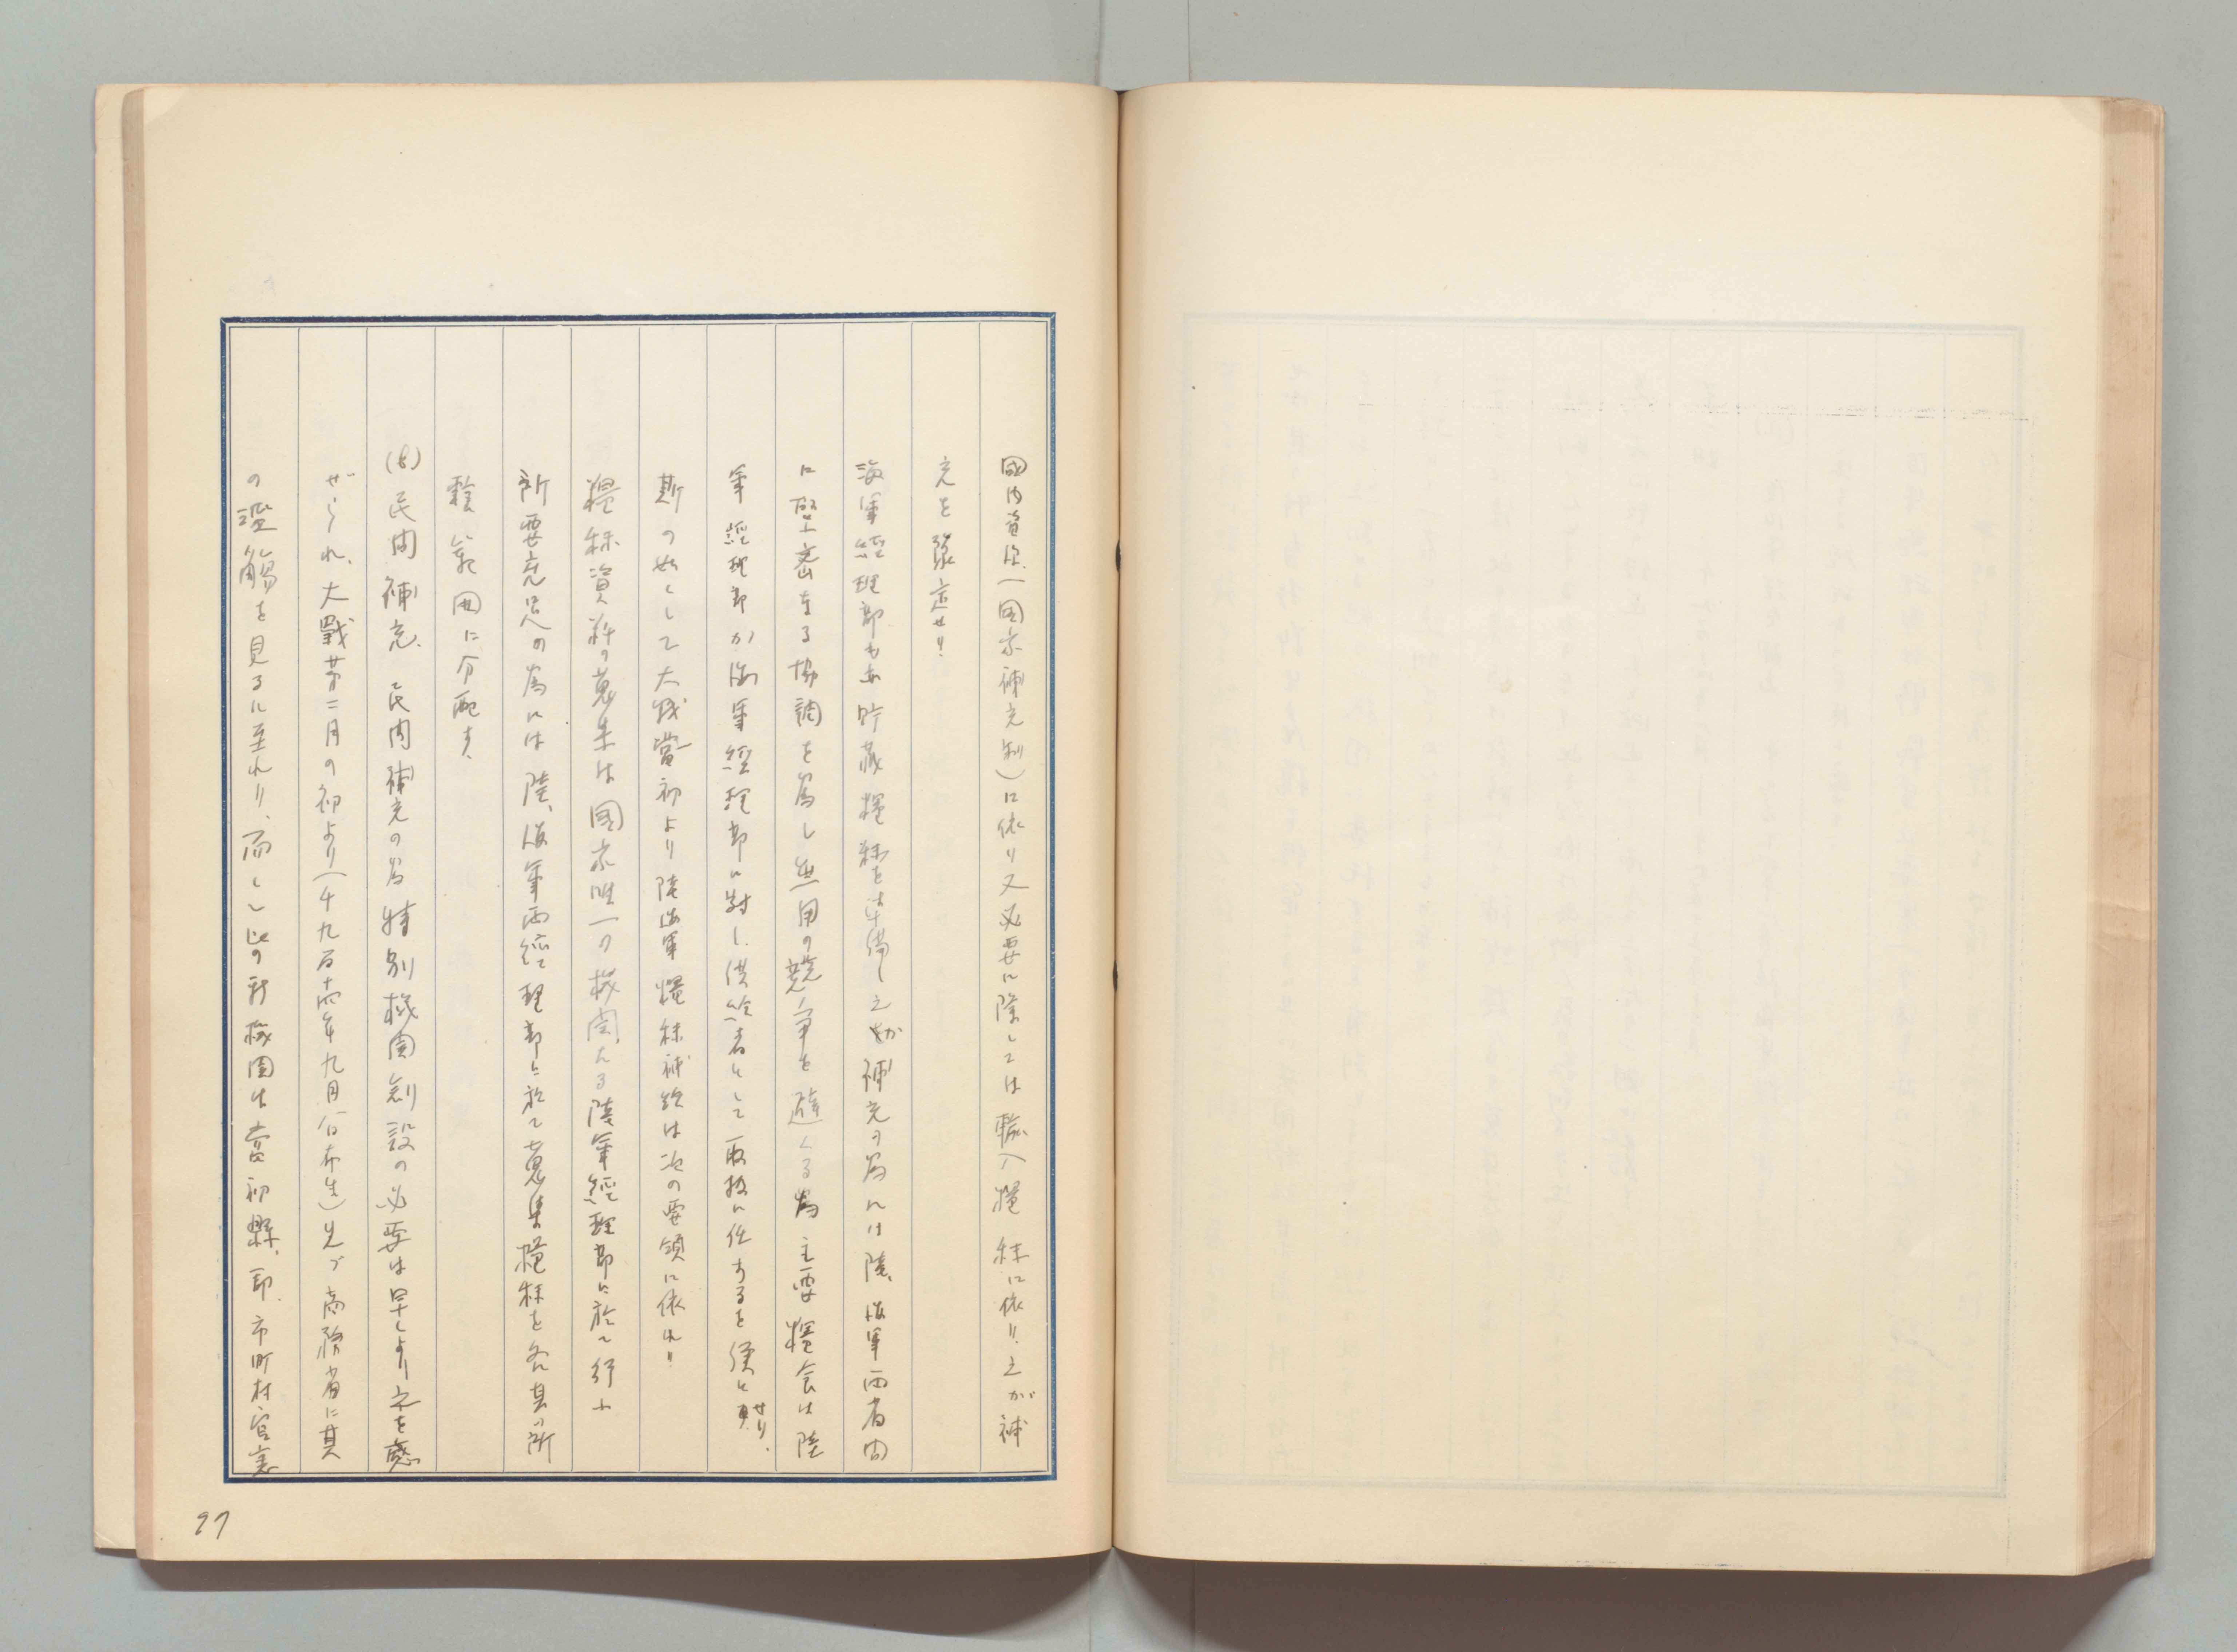 國内資源(國家補充制)に依り又必要に際しては輸入糧秣に依り之が補
充を策定せり
海軍經理部も亦貯藏糧秣を準備し之が補充の為には陸、海軍両者間
に堅密なる協調を為し無用の競争を避くる為主要糧食は陸
軍經理部が海軍經理部に對し供給者として取扱に任ずるを例とせり、
斯の如くして大戰當初より陸海軍糧秣補給は次の要領に依れり
糧秣資料の蒐集は國家唯一の機関たる陸軍經理部に於て行ふ
所要充足の為には陸、海軍両經理部に於て蒐集糧秣を各其の所
範囲に分配す、
(b)民間補充、民間補充の為特別機関創設の必要は早くより之を感
ぜられ、大戰第二月の初より(千九百十四年九月公布生)先づ商務省に其
の濫觴を見るに至れり、而して此の新機関は當初縣、郡、市町村官憲
27